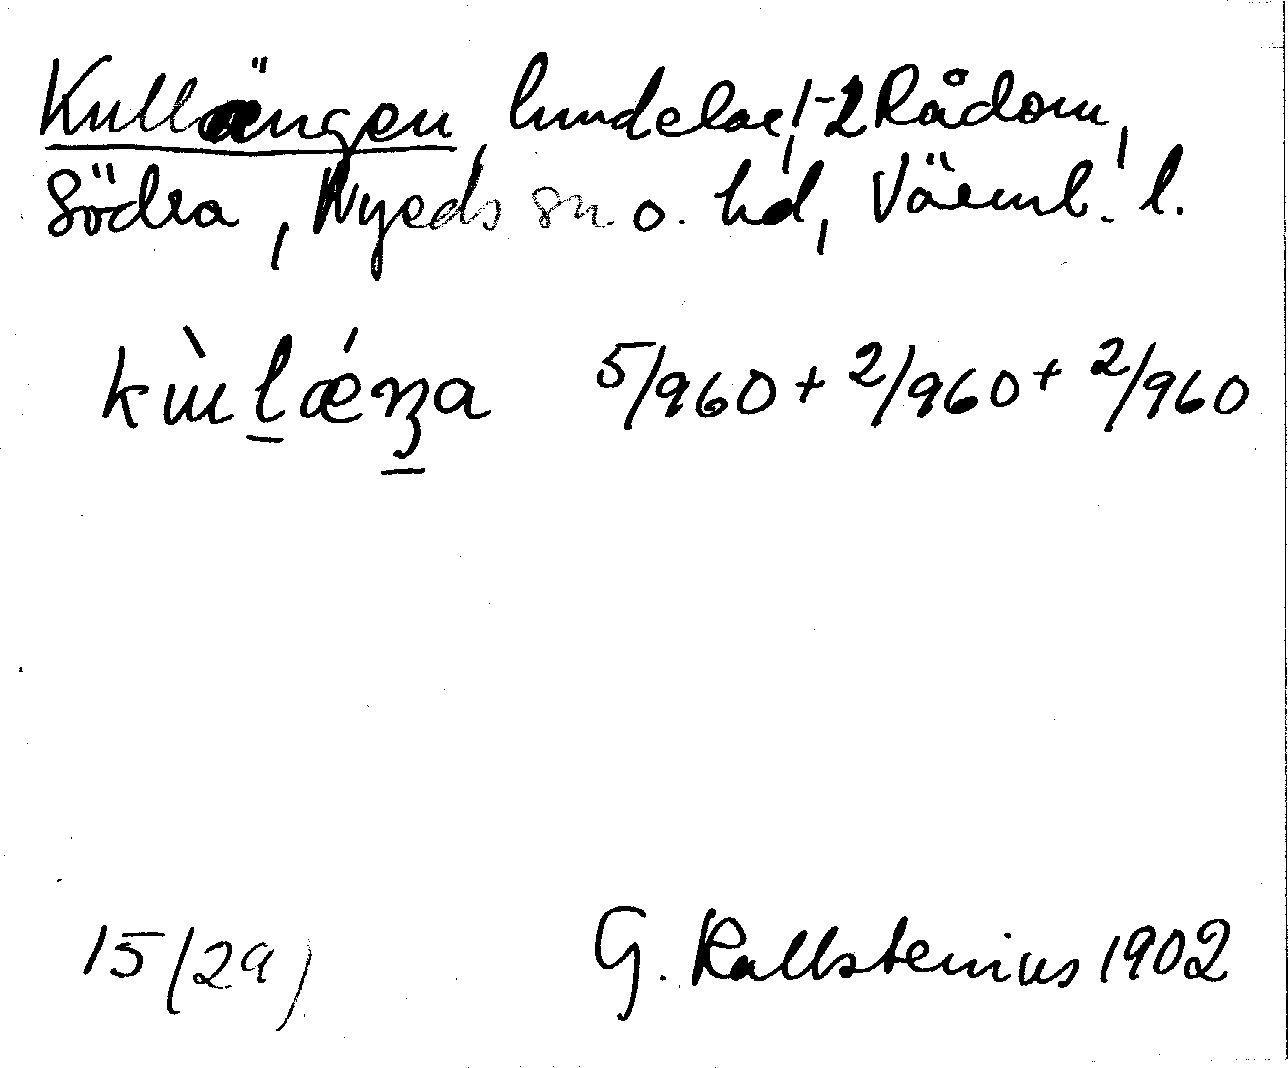 Kullängen, hmdelar, 1-2 Rådom,
Södra, Nyeds sn o. hd, Värml. l.
kùlǽŋa 5/960 + 2/960 + 2/960
15 (29) G. Kallstenius 1902